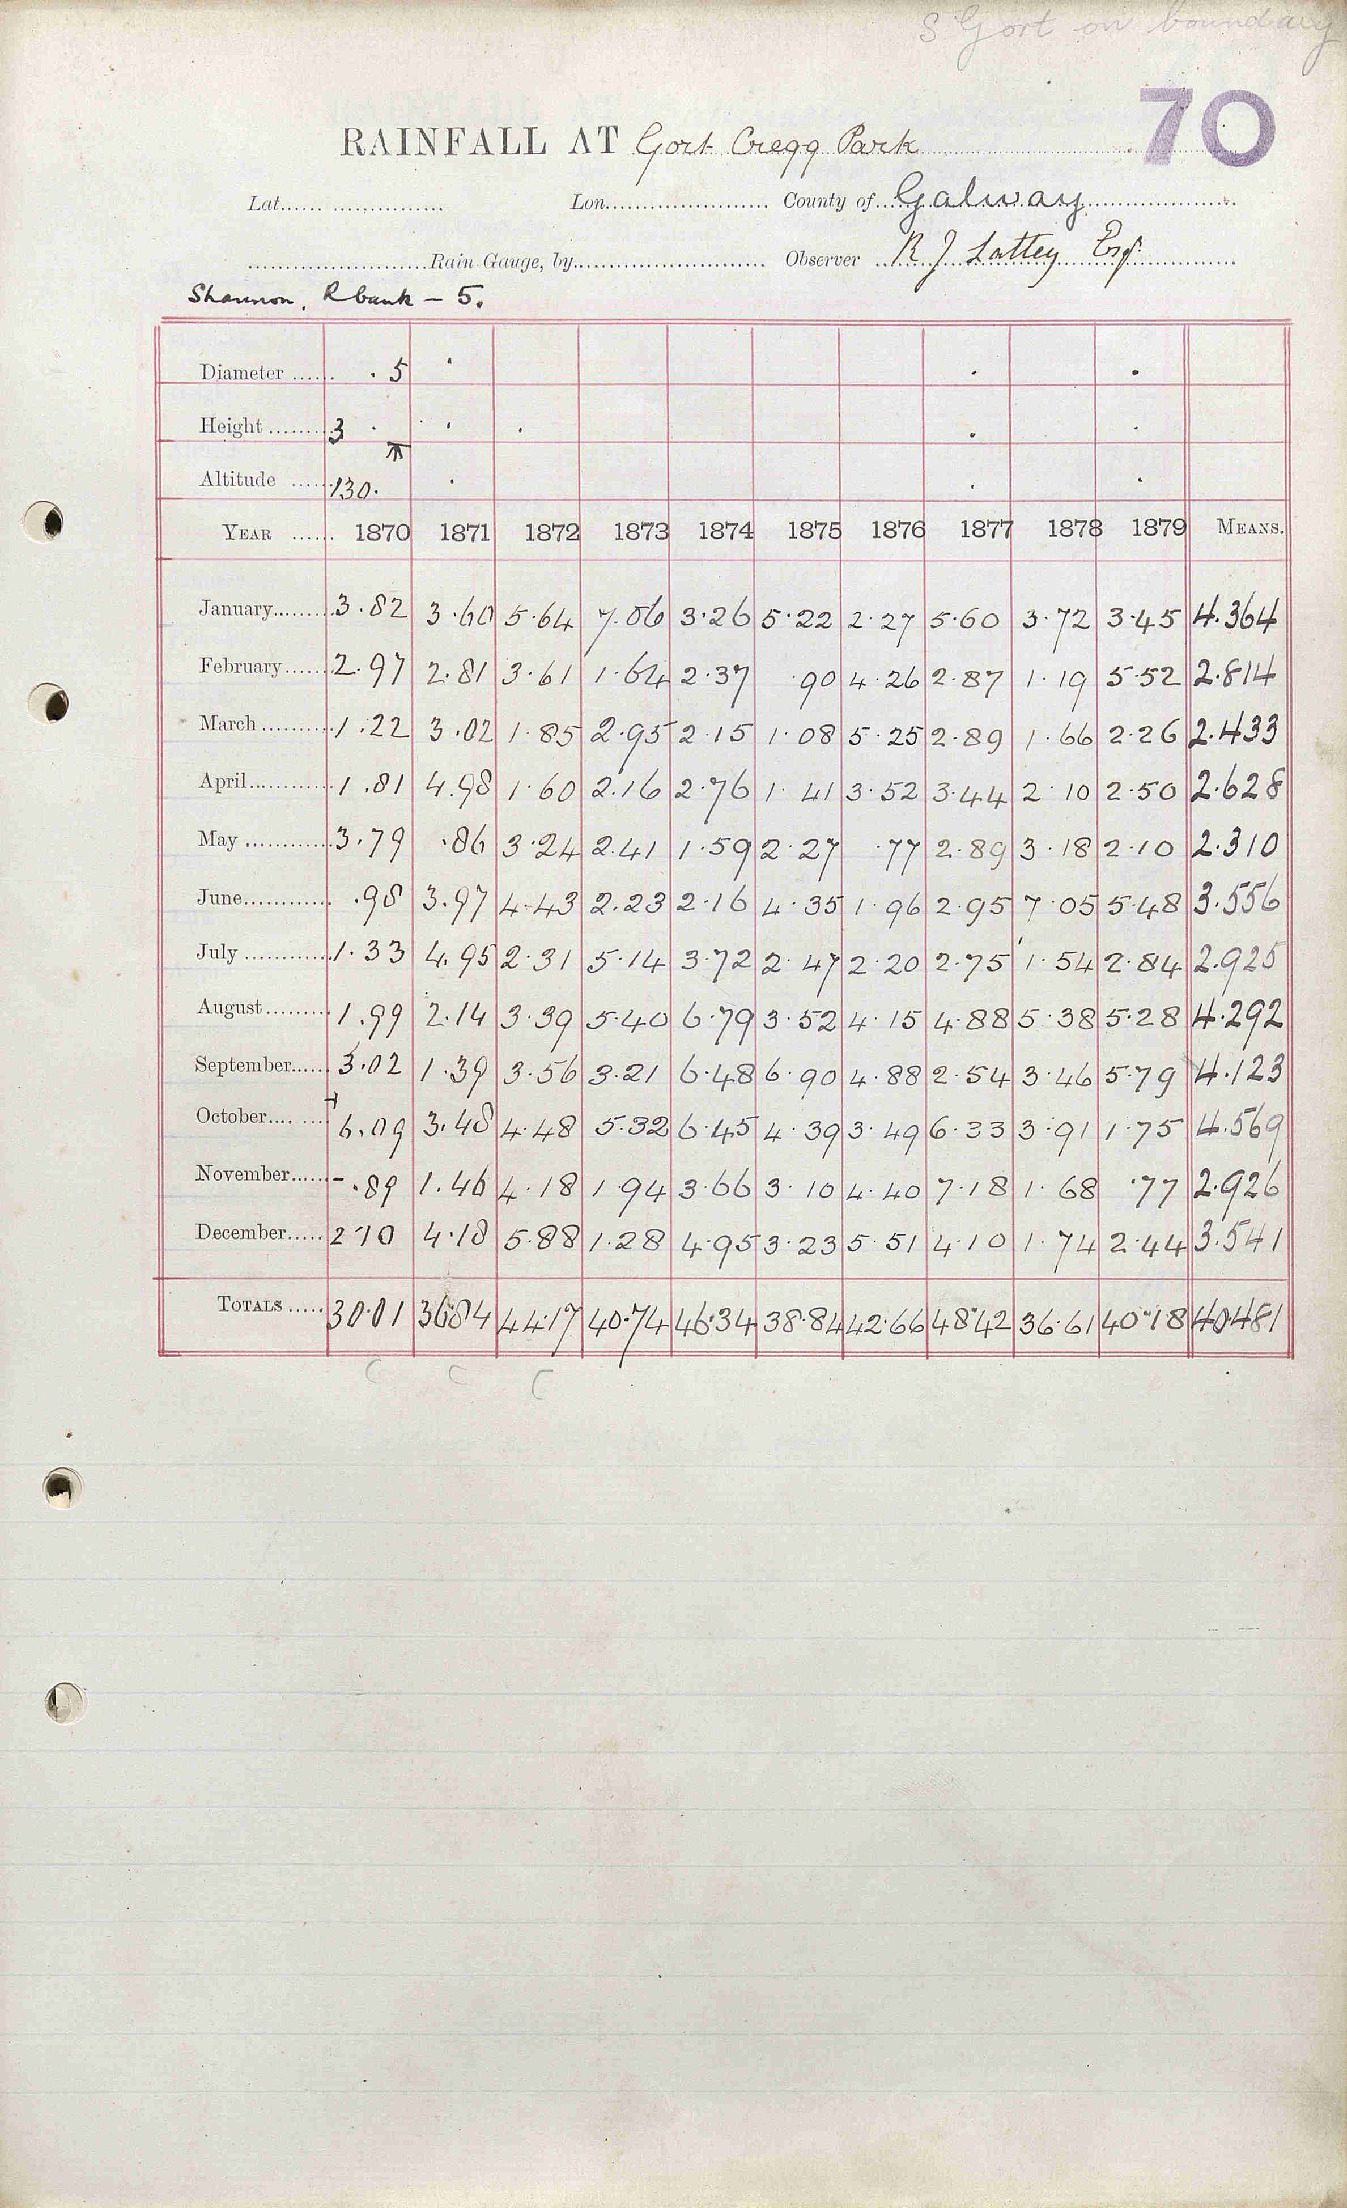 S Gort on boundary
70
RAINFALL AT Gort Cregg Park
Lat. Lon. County of Galway
Rain Gauge, by Observer R J Lattey Esq.
Shannon, R bank – 5.
Diameter . 5
Height 3
Altitude 130.
YEAR 1870 1871 1872 1873 1874 1875 1876 1877 1878 1879 MEANS.
January 3.82 3.60 5.64 7.06 3.26 5.22 2.27 5.60 3.72 3.45 4.364
February 2.97 2.81 3.61 1.64 2.37 .90 4.26 2.87 1.19 5.52 2.814
March 1.22 3.02 1.85 2.95 2.15 1.08 5.25 2.89 1.66 2.26 2.433
April 1.81 4.98 1.60 2.16 2.76 1.41 3.52 3.44 2.10 2.50 2.628
May 3.79 .86 3.24 2.41 1.59 2.27 .77 2.89 3.18 2.10 2.310
June .98 3.97 4.43 2.23 2.16 4.35 1.96 2.95 7.05 5.48 3.556
July 1.33 4.95 2.31 5.14 3.72 2.47 2.20 2.75 1.54 2.84 2.925
August 1.99 2.14 3.39 5.40 6.79 3.52 4.15 4.88 5.38 5.28 4.292
September 3.02 1.39 3.56 3.21 6.48 6.90 4.88 2.54 3.46 5.79 4.123
October 6.09 3.48 4.48 5.32 6.45 4.39 3.49 6.33 3.91 1.75 4.569
November .89 1.46 4.18 1.94 3.66 3.10 4.40 7.18 1.68 .77 2.926
December 2.10 4.18 5.88 1.28 4.95 3.23 5.51 4.10 1.74 2.44 3.541
TOTALS 30.01 36.84 44.17 40.74 46.34 38.84 42.66 48.42 36.61 40.18 40.481
C C C